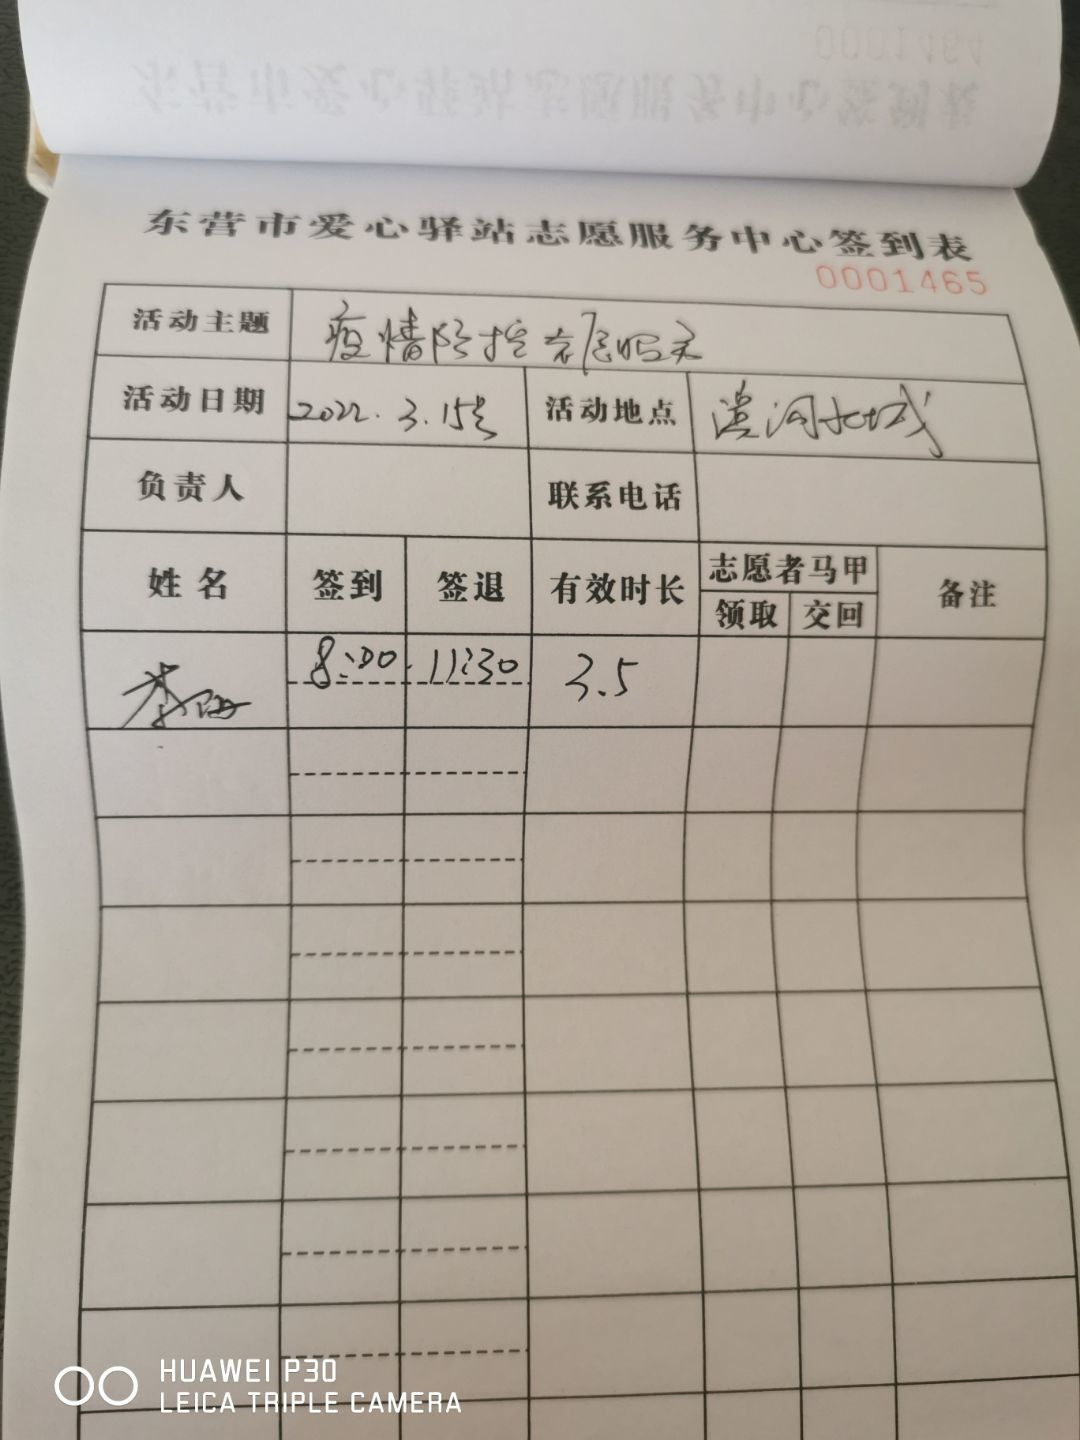 东营市爱心驿站志愿服务中心签到表
0001465
活动主题 疫情防控志愿服务
活动日期 2022.3.15号 活动地点
负责人 联系电话
姓名 签到 签退 有效时长 志愿者马甲 备注
领取 交回
8:00 11:30 3.5
HUAWEI P30
LEICA TRIPLE CAMERA